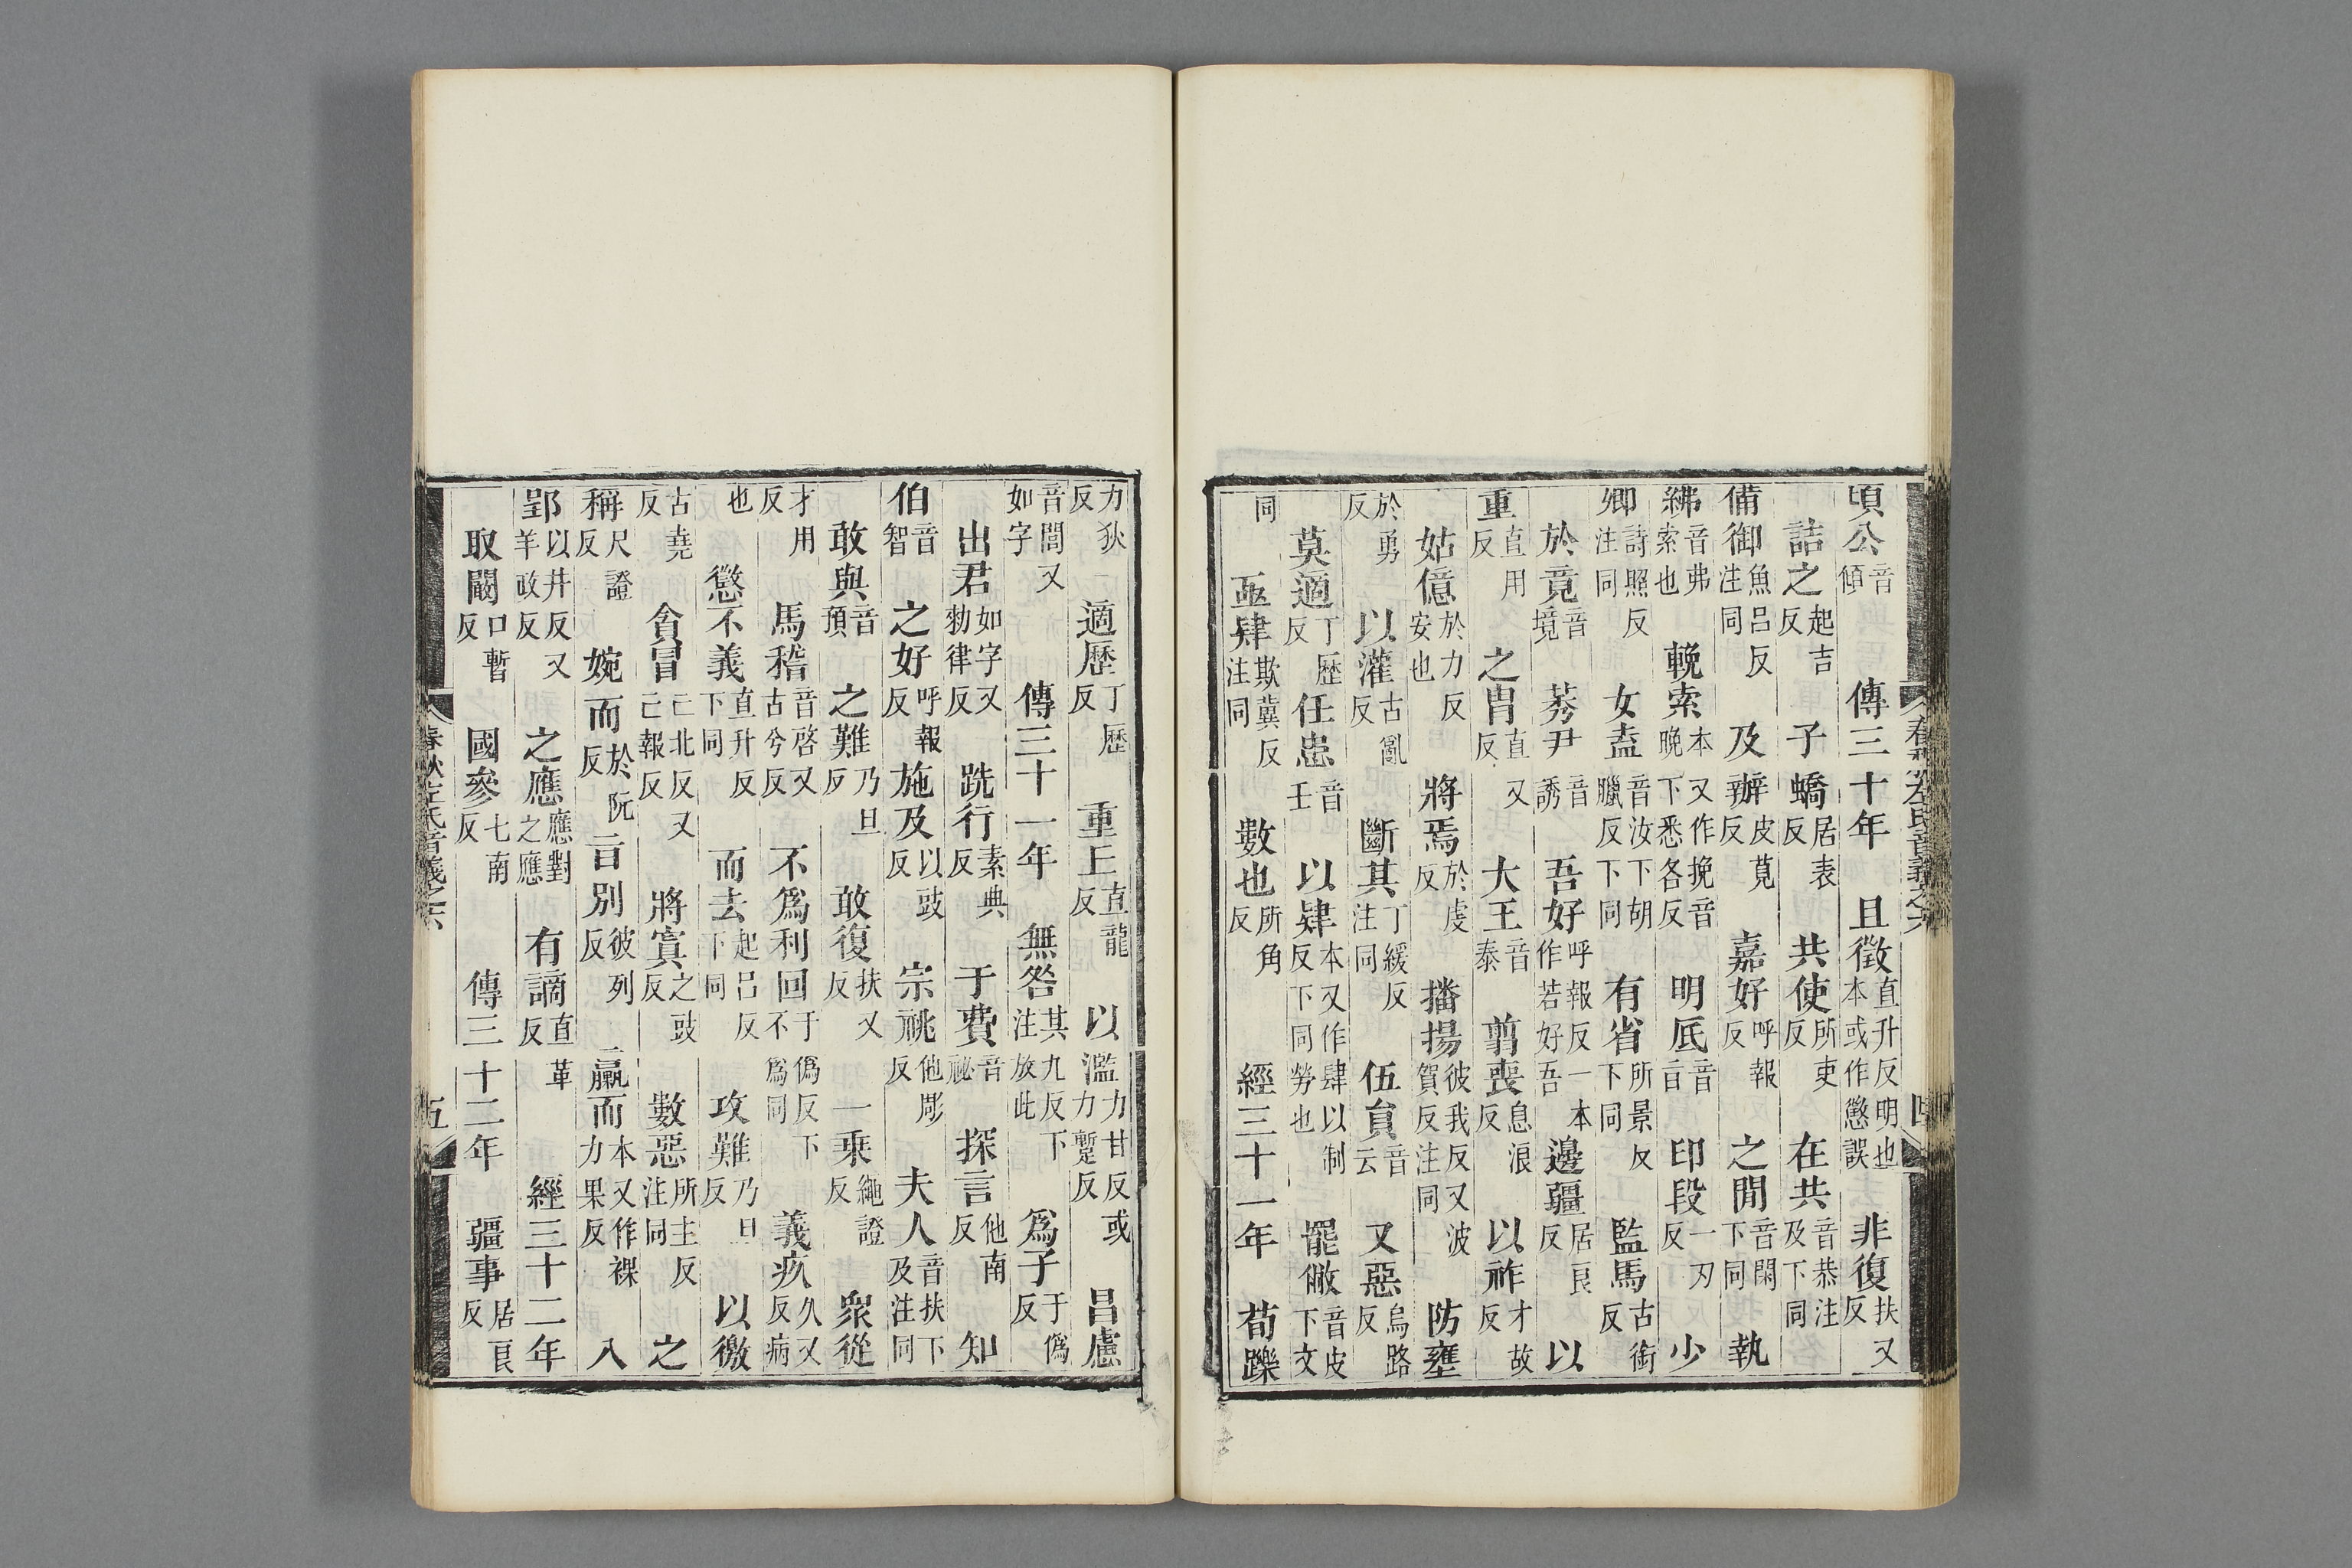 頃公音傾 傳三十年 且徵直升反明也本或作懲誤 非復扶又反
詰之起吉反 子蟜居表反 共使所吏反 在共音恭注及下同
備御魚呂反注同 及辦皮莧反 嘉好呼報反 之閒音閑下同 執
紼音弗索也 輓索本又作挽音晚下悉各反 明底音 印段一刃反 少
卿詩照反注同 女盍音汝下胡臘反下同 有省所景反下同 監馬古銜反
於竟音境 莠尹音誘 吾好呼報反一本作若好吾 邊疆居良反 以
重直用反 之胄直又反 大王音泰 翦喪息浪反 以祚才故反
姑億於力反安也 將焉於虔反 播揚彼我反又波賀反注同 防壅
於勇反 以灌古亂反 斷其丁緩反注同 伍員音云 又惡烏路反
莫適丁歷反 任患音壬 以肄本又作肆以制反下同勞也 罷敝音皮下文
同 亟肄欺冀反注同 數也所角反 經三十一年 荀躒
力狄反 適歷丁歷反 重上直龍反 以濫力甘反或力蹔反 昌慮
音閭又如字 傳三十一年 無咎其九反下注放此 爲子于僞反
出君如字又勑律反 跣行素典反 于費音祕 探言他南反 知
伯音智 之好呼報反 施及以豉反 宗祧他彫反 夫人音扶下及注同
敢與音預 之難乃旦反 敢復扶又反 一乘繩證反 衆從
才用反 馬稽音啓又古兮反 不爲利回于僞反下不爲同 義疚久又反病
也 懲不義直升反下同 而去起呂反下同 攻難乃旦反 以徼
古堯反 貪冒亡北反又亡報反 將寘之豉反 數惡所主反注同 之
稱尺證反 婉而於阮反 言別彼列反 臝而本又作裸力果反 入
郢以井反又羊政反 之應應對之應 有謫直革反 經三十二年
取闞口暫反 國參七南反 傳三十二年 疆事居良反
春秋左氏音義之六 四
春秋左氏音義之六 五